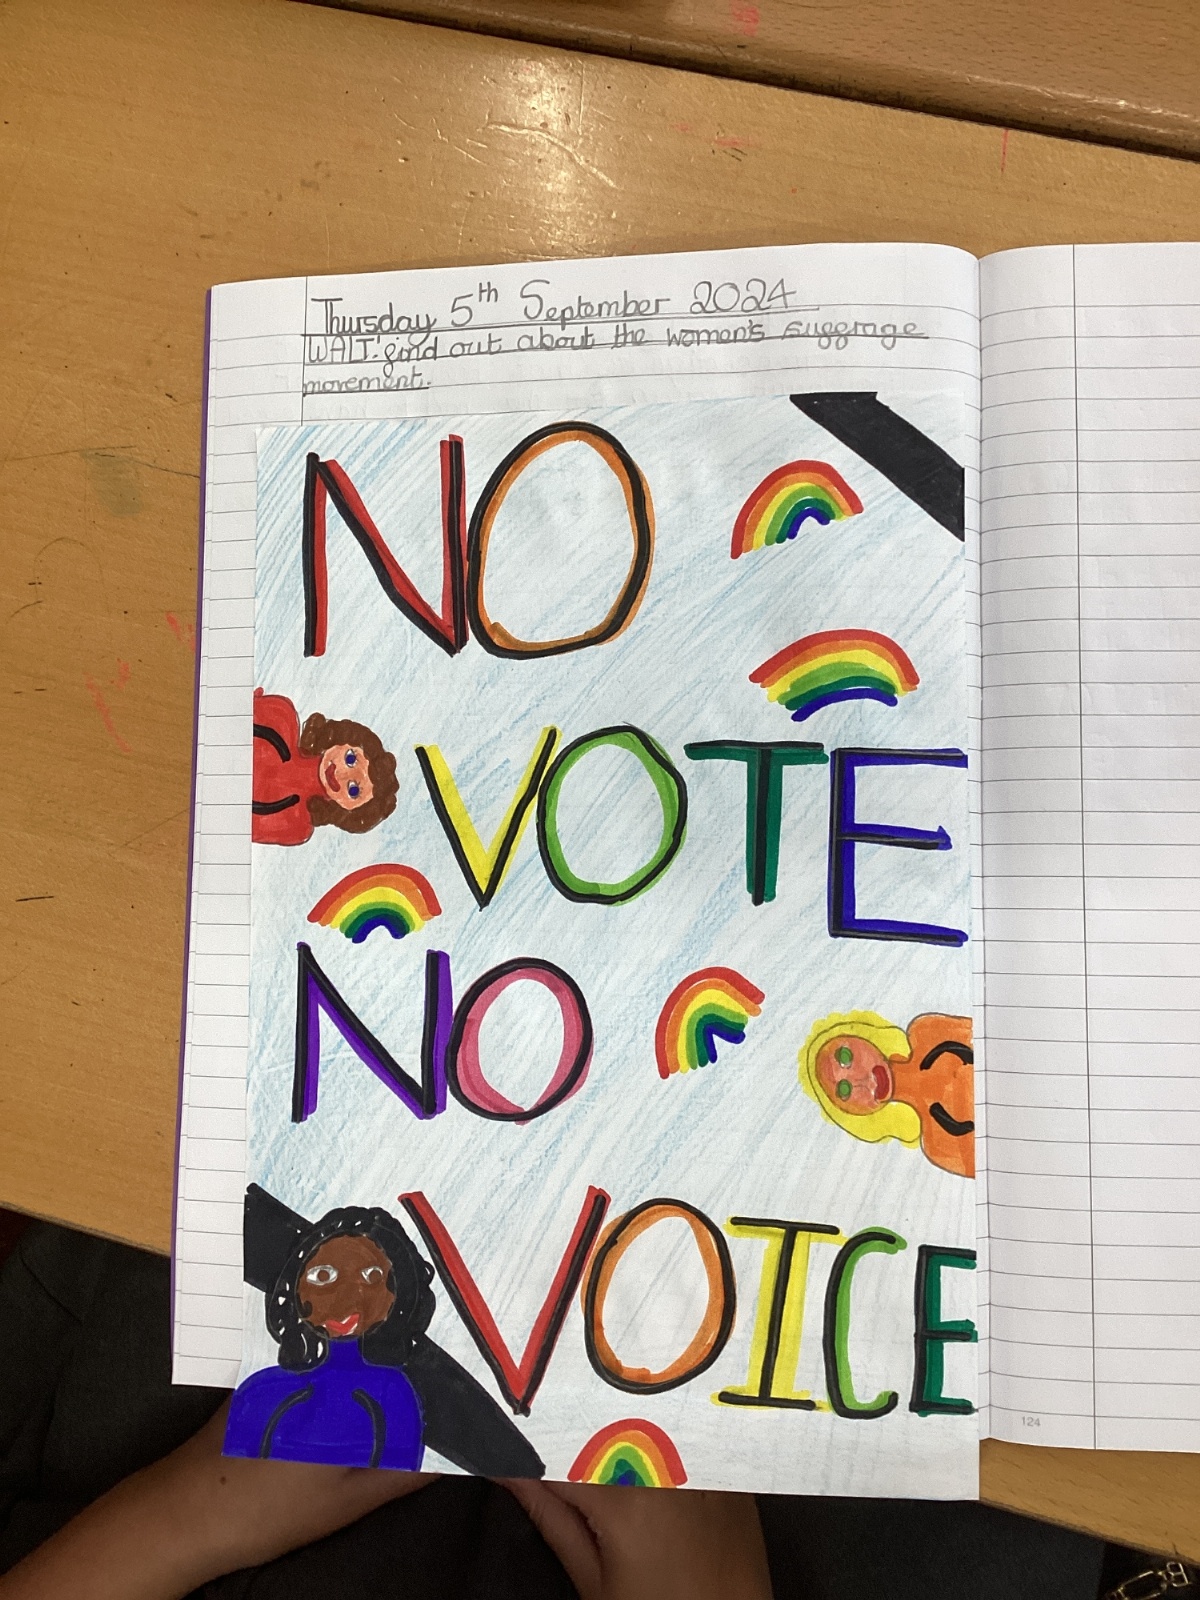 Thursday 5th September 2024
WALT: find out about the women's suffrage
movement.
NO
VOTE
NO
VOICE
124